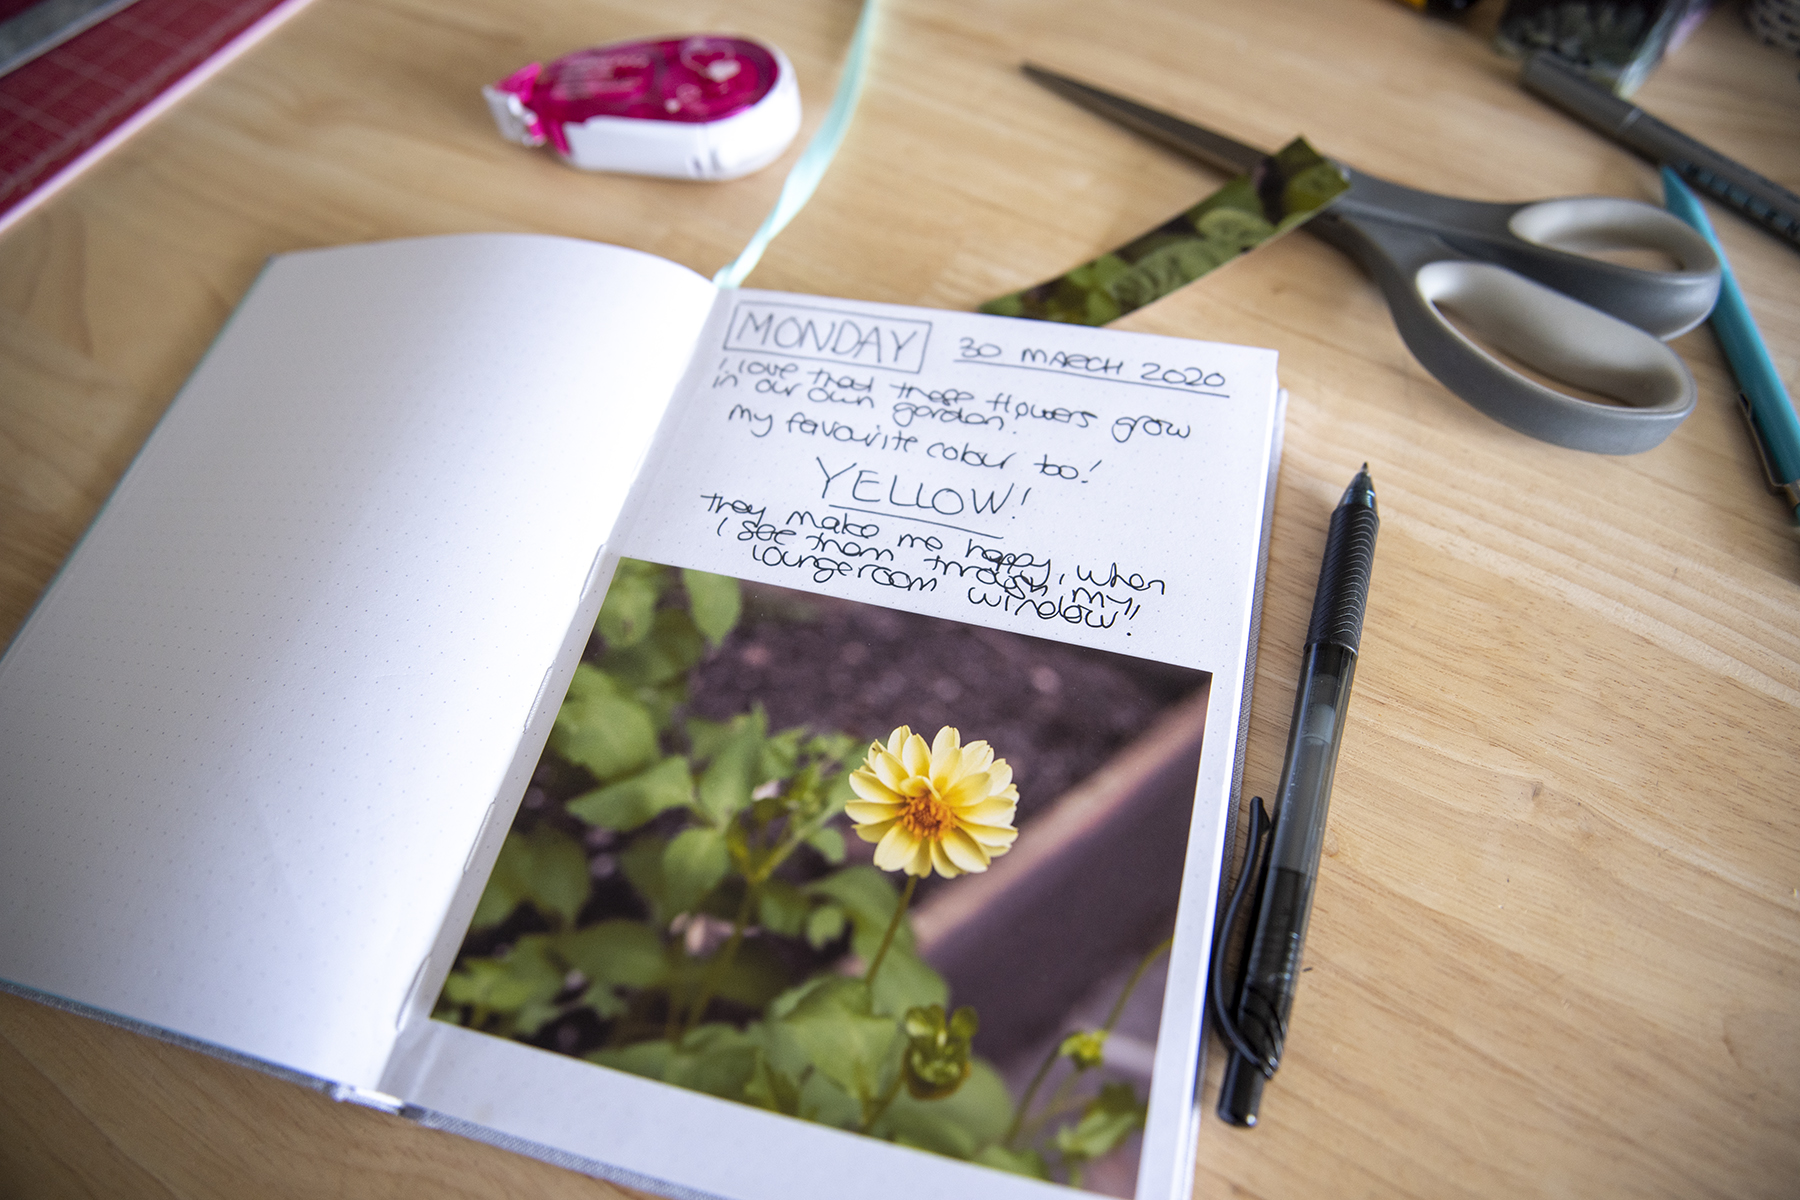 MONDAY 30 MARCH 2020
I love that these flowers grow
in our own garden.
my favourite colour too!
YELLOW!
They make me happy, when
I see them through my
loungeroom window!